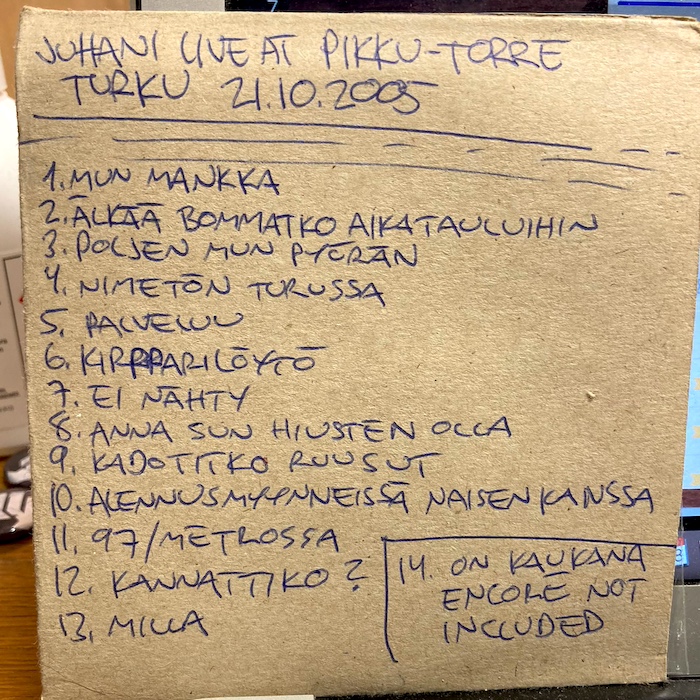 JUHANI LIVE AT PIKKU-TORRE
TURKU 21.10.2005
1. MUN MANKKA
2. ÄLKÄÄ BOMMATKO AIKATAULUIHIN
3. POLJEN MUN PYÖRÄN
4. NIMETÖN TURUSSA
5. PALVELUU
6. KIRPPARILÖYTÖ
7. EI NÄHTY
8. ANNA SUN HIUSTEN OLLA
9. KADOTITKO RUUSUT
10. ALENNUSMYYNNEISSÄ NAISEN KANSSA
11. 97/METROSSA
12. KANNATTIKO?
13. MILLA
14. ON KAUKANA
ENCORE NOT
INCLUDED